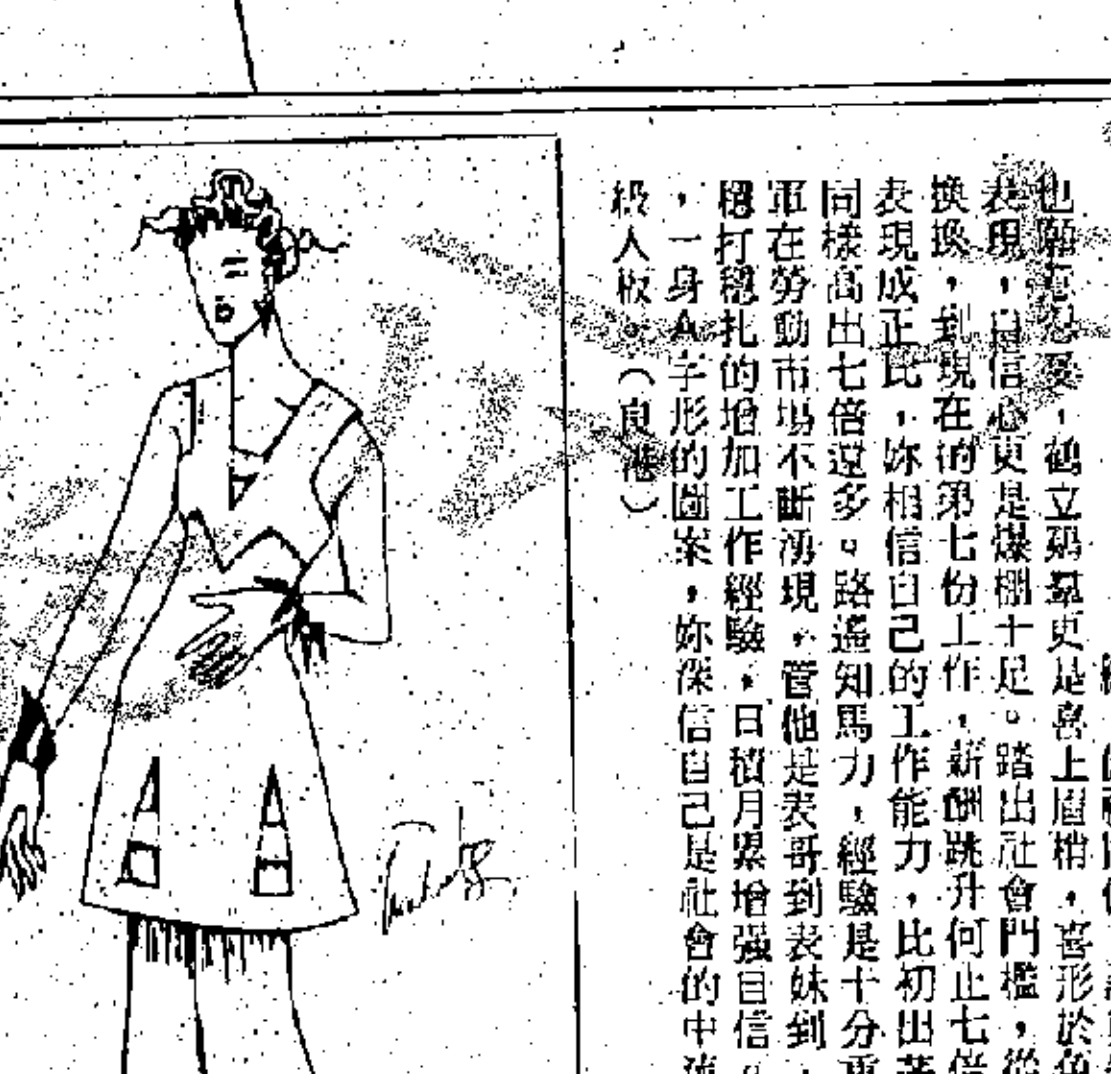 也願意忍受，鶴立鷄羣更是喜上眉梢，喜形於色
表現，自信心更是爆棚十足。踏出社會門檻，從
換換，到現在的第七份工作，薪酬跳升何止七倍
表現成正比，妳相信自己的工作能力，比初出茅
同樣高出七倍還多。路遙知馬力，經驗是十分重
軍在勞動市場不斷湧現，管他是表哥到表妹到，
穩打穩扎的增加工作經驗，日積月累增强自信。
，一身A字形的圖案，妳深信自己是社會的中流
級人板。（良港）